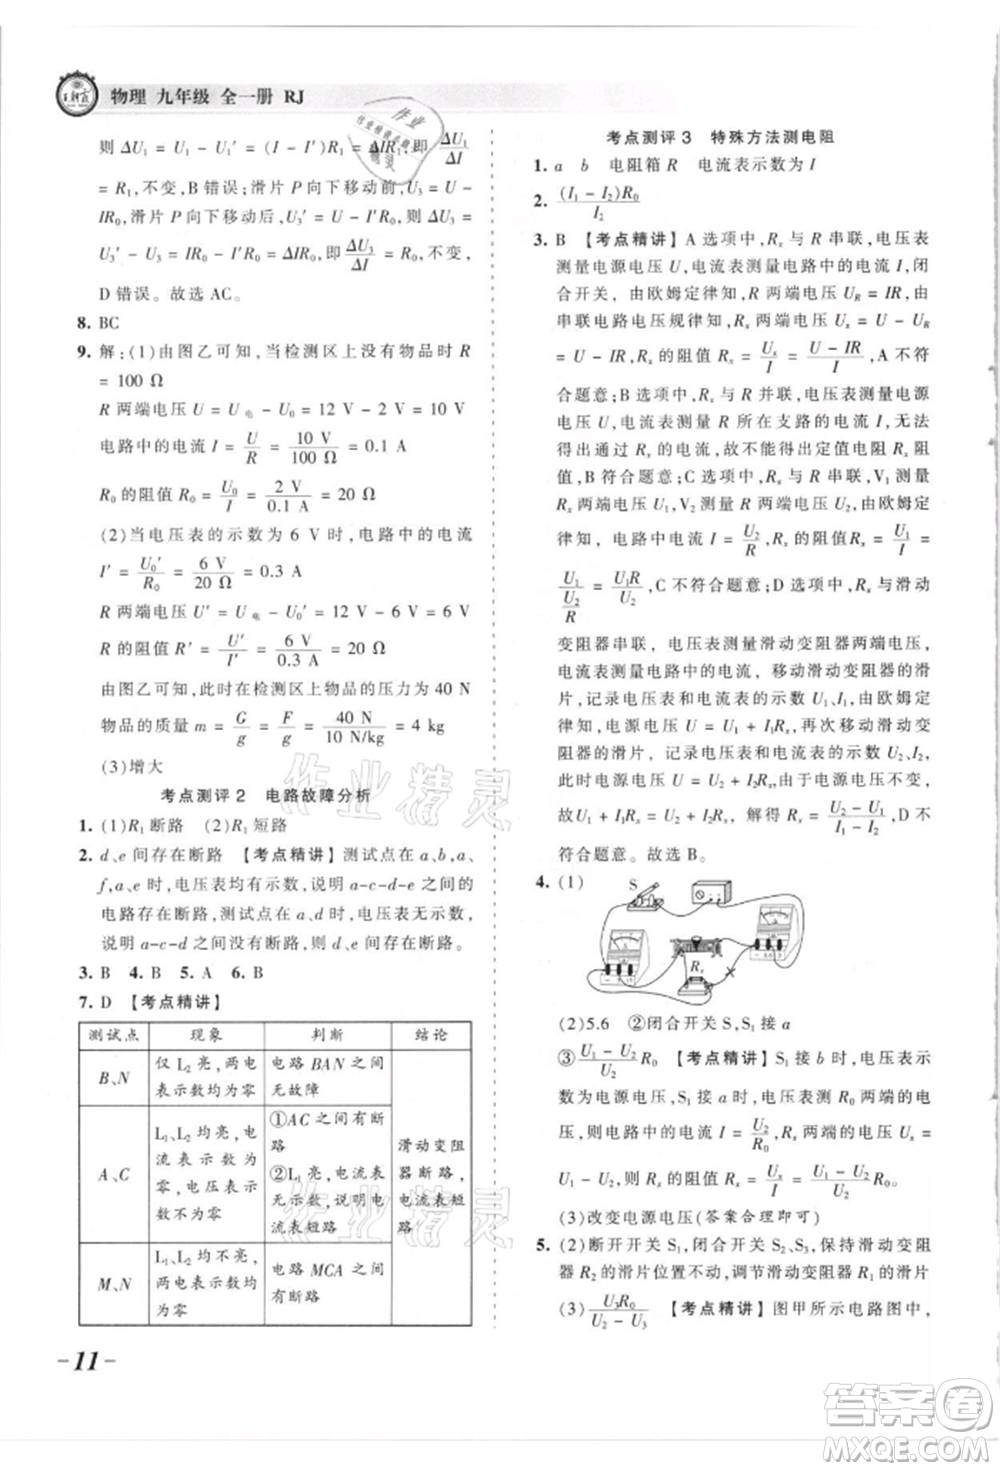 王朝霞 物理 九年级 全一册 RJ
则 ΔU₁ = U₁ - U₁′ = IR₁ - I′R₁ = ΔIR₁,即 ΔU₁/ΔI
= R₁,不变,B 错误;滑片 P 向下移动前,U₃ =
IR₀,滑片 P 向下移动后,U₃′ = I′R₀,则 ΔU₃ =
U₃′ - U₃ = I′R₀ - IR₀ = ΔIR₀,即 ΔU₃/ΔI = R₀,不变,
D 错误。故选 AC。
8. BC
9. 解:(1)由图乙可知,当检测区上没有物品时 R
= 100 Ω
R 两端电压 U = U电 - U₀ = 12 V - 2 V = 10 V
电路中的电流 I = U/R = 10 V/100 Ω = 0.1 A
R₀ 的阻值 R₀ = U₀/I = 2 V/0.1 A = 20 Ω
(2)当电压表的示数为 6 V 时,电路中的电流
I′ = U₀′/R₀ = 6 V/20 Ω = 0.3 A
R 两端电压 U′ = U电 - U₀′ = 12 V - 6 V = 6 V
R 的阻值 R′ = U′/I′ = 6 V/0.3 A = 20 Ω
由图乙可知,此时在检测区上物品的压力为 40 N
物品的质量 m = G/g = F/g = 40 N/10 N/kg = 4 kg
(3)增大
考点测评 2 电路故障分析
1. (1)R₁ 断路 (2)R₁ 短路
2. d、e 间存在断路 【考点精讲】测试点在 a、b,a、
f,a、e 时,电压表均有示数,说明 a-c-d-e 之间的
电路存在断路,测试点在 a、d 时,电压表无示数,
说明 a-c-d 之间没有断路,则 d、e 间存在断路。
3. B 4. B 5. A 6. B
7. D 【考点精讲】
测试点 现象 判断 结论
B、N 仅 L₂ 亮,两电表示数均为零 电路 BAN 之间无故障
A、C L₁、L₂ 均亮,电流表示数为零,电压表示数不为零 ①AC 之间有断路 ②L₁ 亮,电流表无示数,说明电流表短路 滑动变阻器断路,电流表短路
M、N L₁、L₂ 均不亮,两电表示数均为零 电路 MCA 之间有断路
-11-
考点测评 3 特殊方法测电阻
1. a b 电阻箱 R 电流表示数为 I
2. (I₁ - I₂)R₀/I₂
3. B 【考点精讲】A 选项中,Rₓ 与 R 串联,电压表
测量电源电压 U,电流表测量电路中的电流 I,闭
合开关,由欧姆定律知,R 两端电压 U_R = IR,由
串联电路电压规律知,Rₓ 两端电压 Uₓ = U - U_R
= U - IR,Rₓ 的阻值 Rₓ = Uₓ/I = (U - IR)/I,A 不符
合题意;B 选项中,Rₓ 与 R 并联,电压表测量电源
电压 U,电流表测量 R 所在支路的电流,无法
得出通过 Rₓ 的电流,故不能得出定值电阻 Rₓ 阻
值,B 符合题意;C 选项中,Rₓ 与 R 串联,V₁ 测量
Rₓ 两端的电压,V₂ 测量 R 两端电压,由欧姆定
律知,电路中电流 I = U₂/R,Rₓ 的阻值 Rₓ = U₁/I =
U₁/(U₂/R) = U₁R/U₂,C 不符合题意;D 选项中,Rₓ 与滑动
变阻器串联,电压表测量滑动变阻器两端电压,
电流表测量电路中的电流,移动滑动变阻器的滑
片,记录电压表和电流表的示数 U₁、I₁,由欧姆定
律知,电源电压 U = U₁ + I₁Rₓ,再次移动滑动变
阻器的滑片,记录电压表和电流表的示数 U₂、I₂,
此时电源电压 U = U₂ + I₂Rₓ,由于电源电压不变,
故U₁ + I₁Rₓ = U₂ + I₂Rₓ,解得 Rₓ = (U₂ - U₁)/(I₁ - I₂),D 不
符合题意。故选 B。
4. (1)
S
Rₓ
(2)5.6 ②闭合开关 S,S₁ 接 a
③(U₁ - U₂)/U₂ R₀ 【考点精讲】S₁ 接 b 时,电压表示
数为电源电压,S₁ 接 a 时,电压表测 R₀ 两端的电
压,则电路中的电流 I = U₂/R₀,Rₓ 两端的电压 Uₓ =
U₁ - U₂,则 Rₓ 的阻值 Rₓ = Uₓ/I = (U₁ - U₂)/U₂ R₀。
(3)改变电源电压(答案合理即可)
5. (2)断开开关 S₁,闭合开关 S₂、S₃,保持滑动变阻
器 R₂ 的滑片位置不动,调节滑动变阻器 R₁ 的滑片
(3)U₃R₀/(U₂ - U₃) 【考点精讲】图甲所示电路图中,
作业精灵
作业精灵
答案圈
MXQE.COM